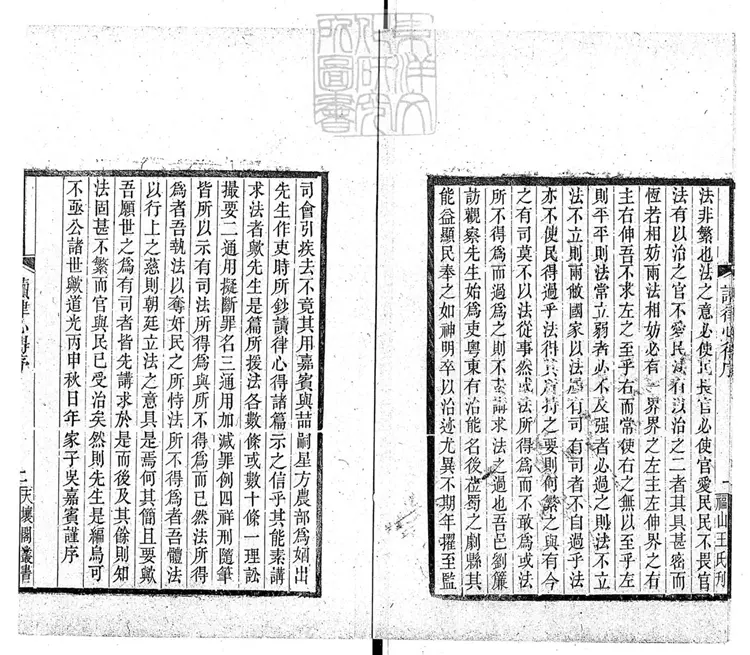 法非繁也法之意必使民畏官必使官愛民民不畏官
法有以治之官不愛民法有以治之二者其具甚密而
恆若相妨兩法相妨必有一界界之左主左伸界之右
主右伸吾不求左之至乎右而常使右之無以至乎左
則平平則法常立弱者必不及强者必過之則法不立
法不立則兩敝國家以法屬有司有司者不自過乎法
亦不使民得過乎法得其所持之要則何繁之與有今
之有司莫不以法從事然或法所得爲而不敢爲或法
所不得爲而過爲之則不素講求法之過也吾邑劉簾
訪觀察先生始爲吏粤東有治能名後蒞蜀之劇縣其
能益顯民奉之如神明卒以治迹尤異不期年擢至監
讀律心得序
一
福山王氏刋
司會引疾去不竟其用嘉賓與喆嗣星方農部爲婣出
先生作吏時所鈔讀律心得諸篇示之信乎其能素講
求法者歟先生是篇所援法各數條或數十條一理訟
撮要二通用擬斷罪名三通用加減罪例四祥刑隨筆
皆所以示有司法所得爲與所不得爲而已然法所得
爲者吾執法以奪奸民之所恃法所不得爲者吾體法
以行上之慈則朝廷立法之意具是焉何其簡且要歟
吾願世之爲有司者皆先講求於是而後及其餘則知
法固甚不繁而官與民已受治矣然則先生是編烏可
不亟公諸世歟道光丙申秋日年家子吳嘉賓謹序
讀律心得序
二
天壤閣叢書
東洋文
化研究
所圖書